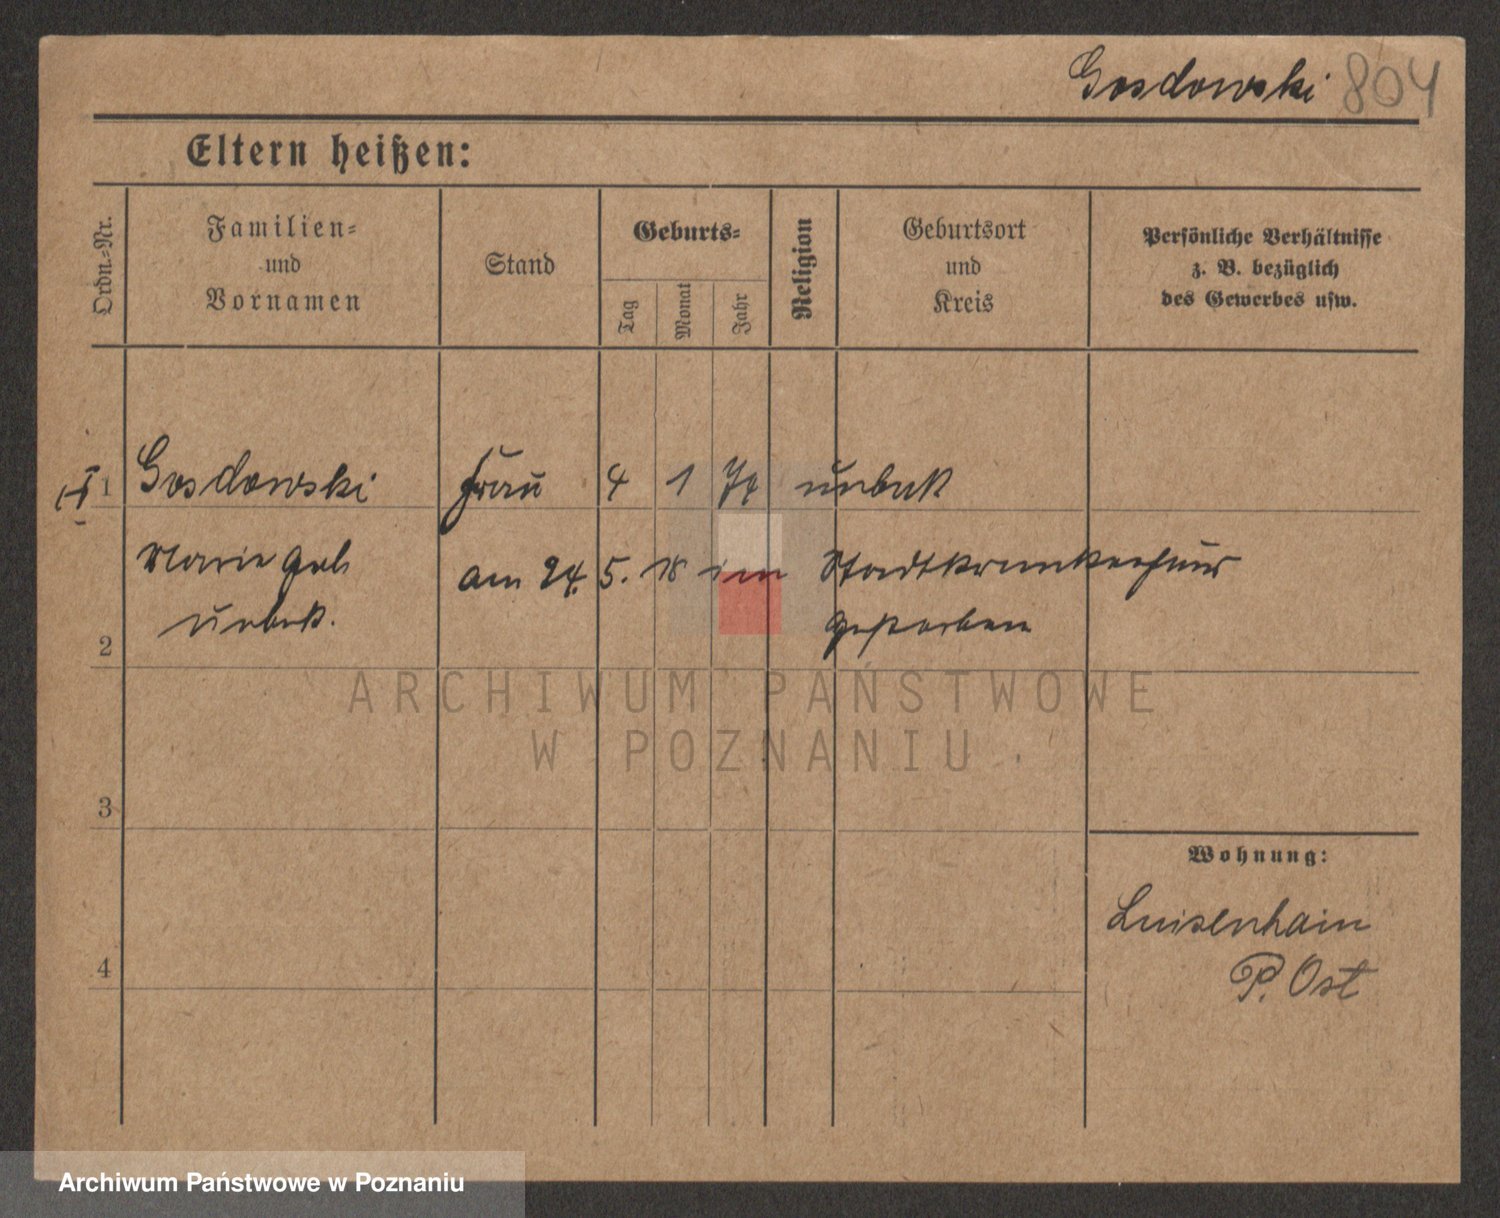 Gosdowski 804
Eltern heißen:
Ordn.-Nr.
Familien-
und
Vornamen
Stand
Geburts-
Tag
Monat
Jahr
Religion
Geburtsort
und
Kreis
Persönliche Verhältnisse
z. B. bezüglich
des Gewerbes usw.
1 Gosdowski Frau 4 1 74 unbek
Marie geb
unbek.
am 24. 5. 18 im Stadtkrankenhaus
gestorben
2
3
4
Wohnung:
Luisenhain
P. Ost
ARCHIWUM PAŃSTWOWE
W POZNANIU
Archiwum Państwowe w Poznaniu